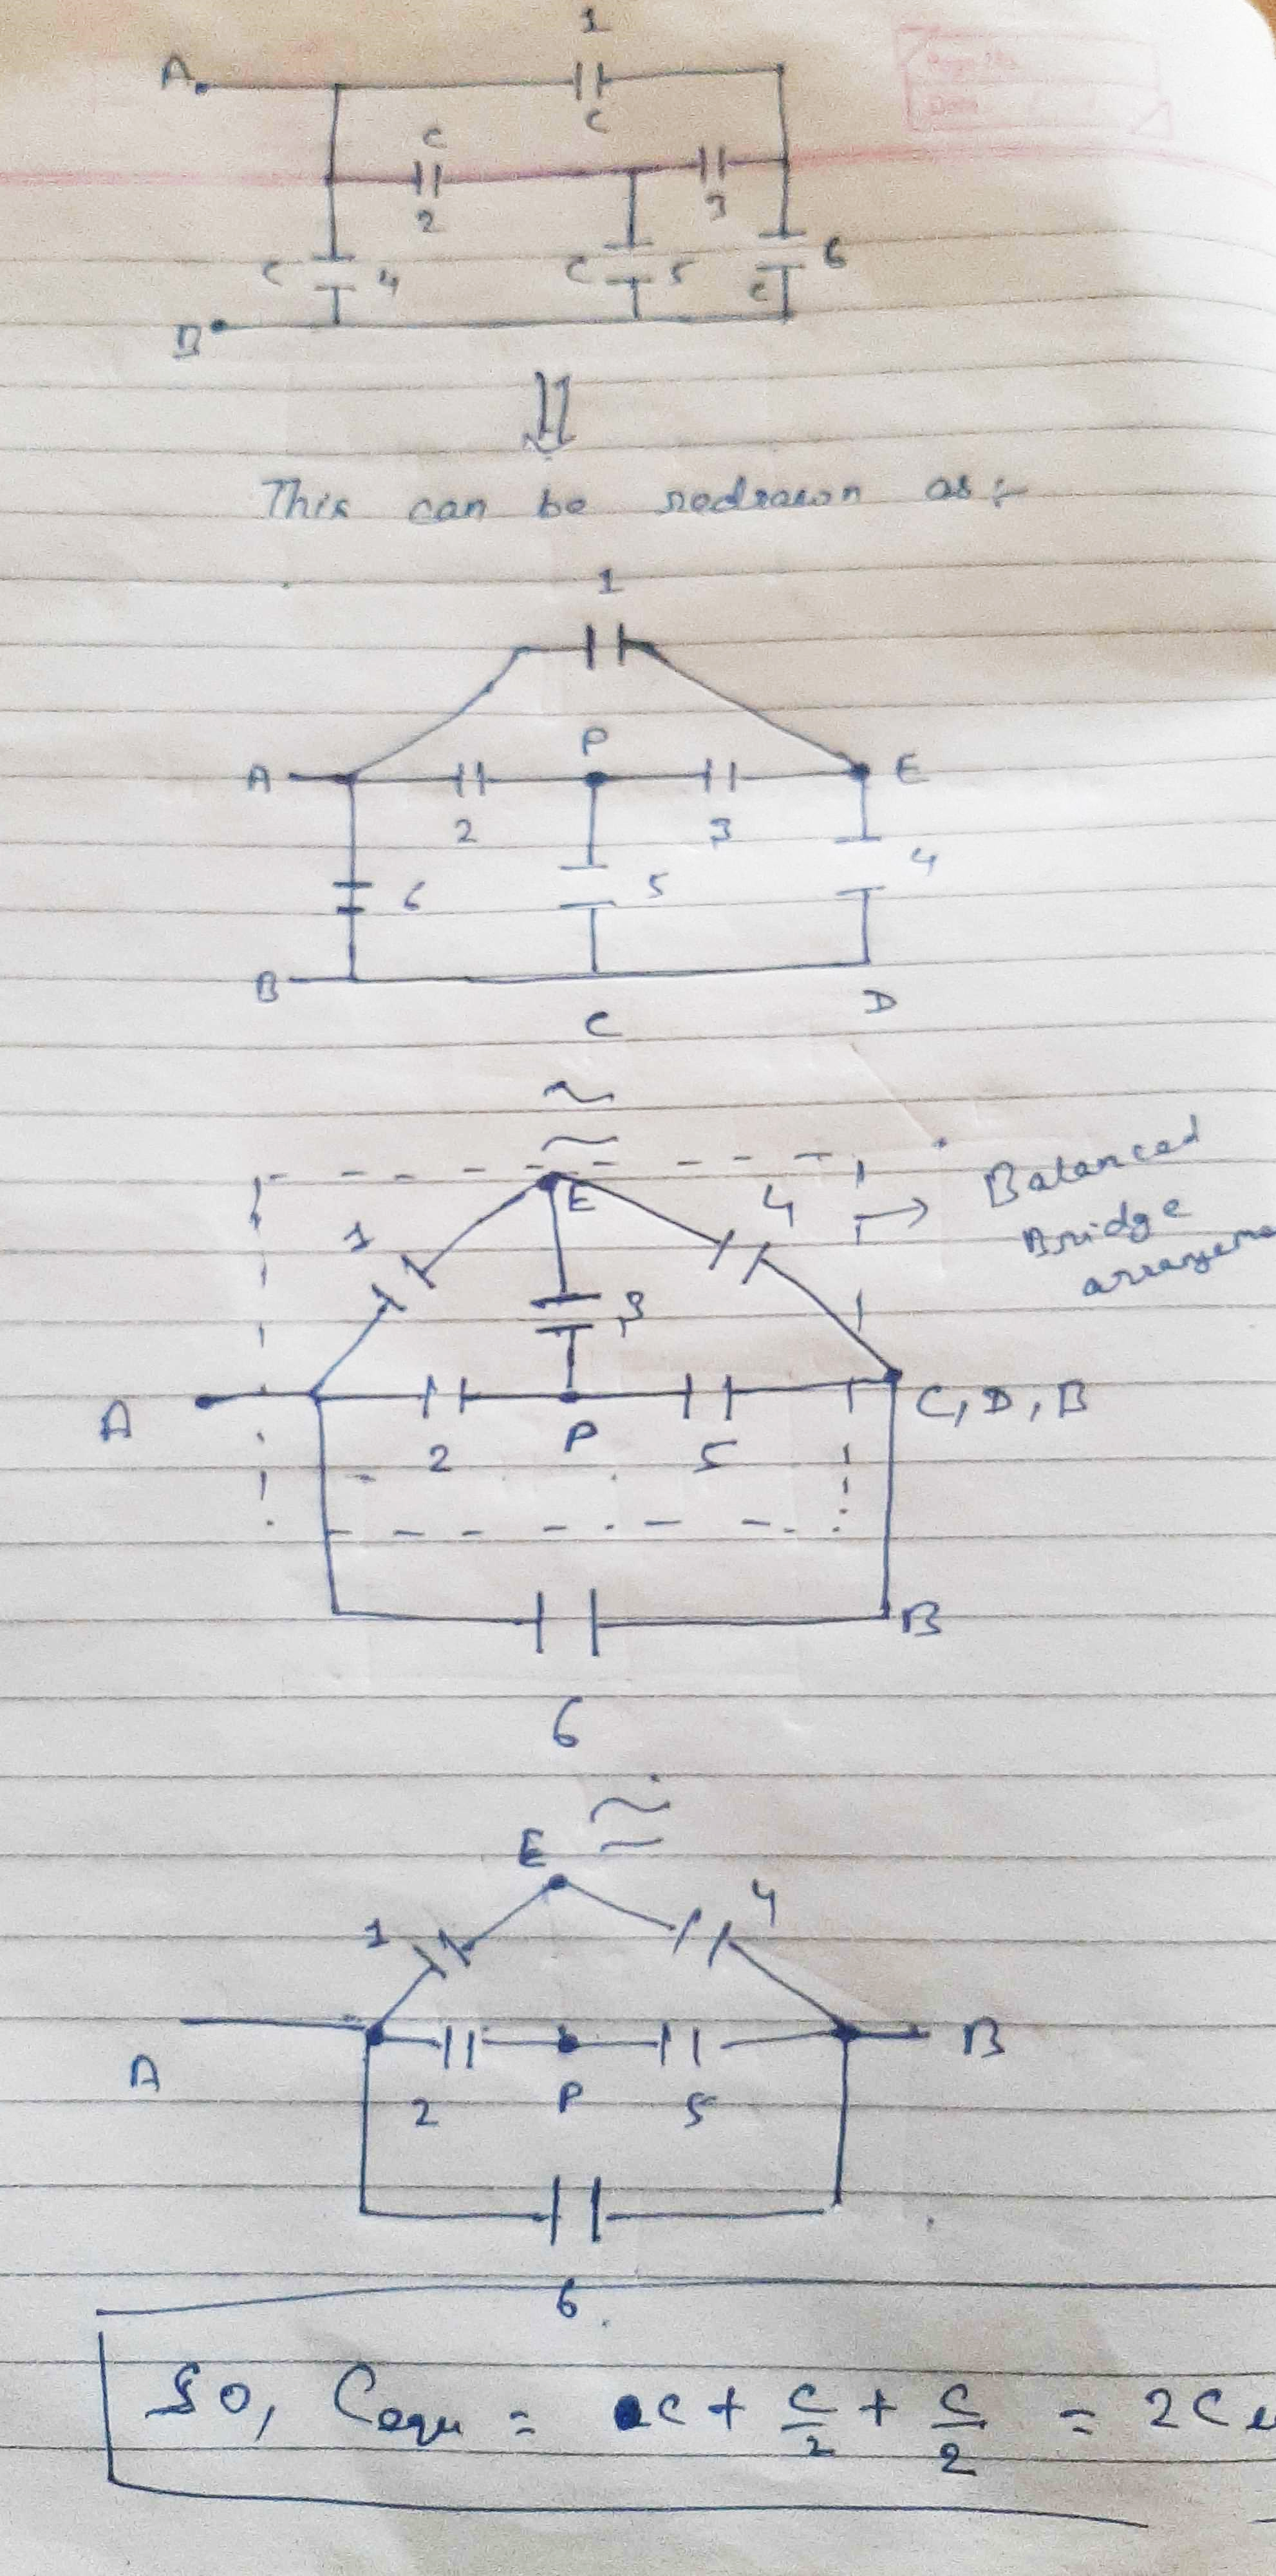 1
A
C
C
2
3
C 4
C 5
6
C
B
This can be redrawn as :-
1
P
A
E
2
3
6
5
4
B
C
D
≈
E
4
→ Balanced
Bridge
1
3
A
C, D, B
P
2
5
B
6
≈
E
4
1
A
B
2
P
5
6
So, Cequ = C + C/2 + C/2 = 2C